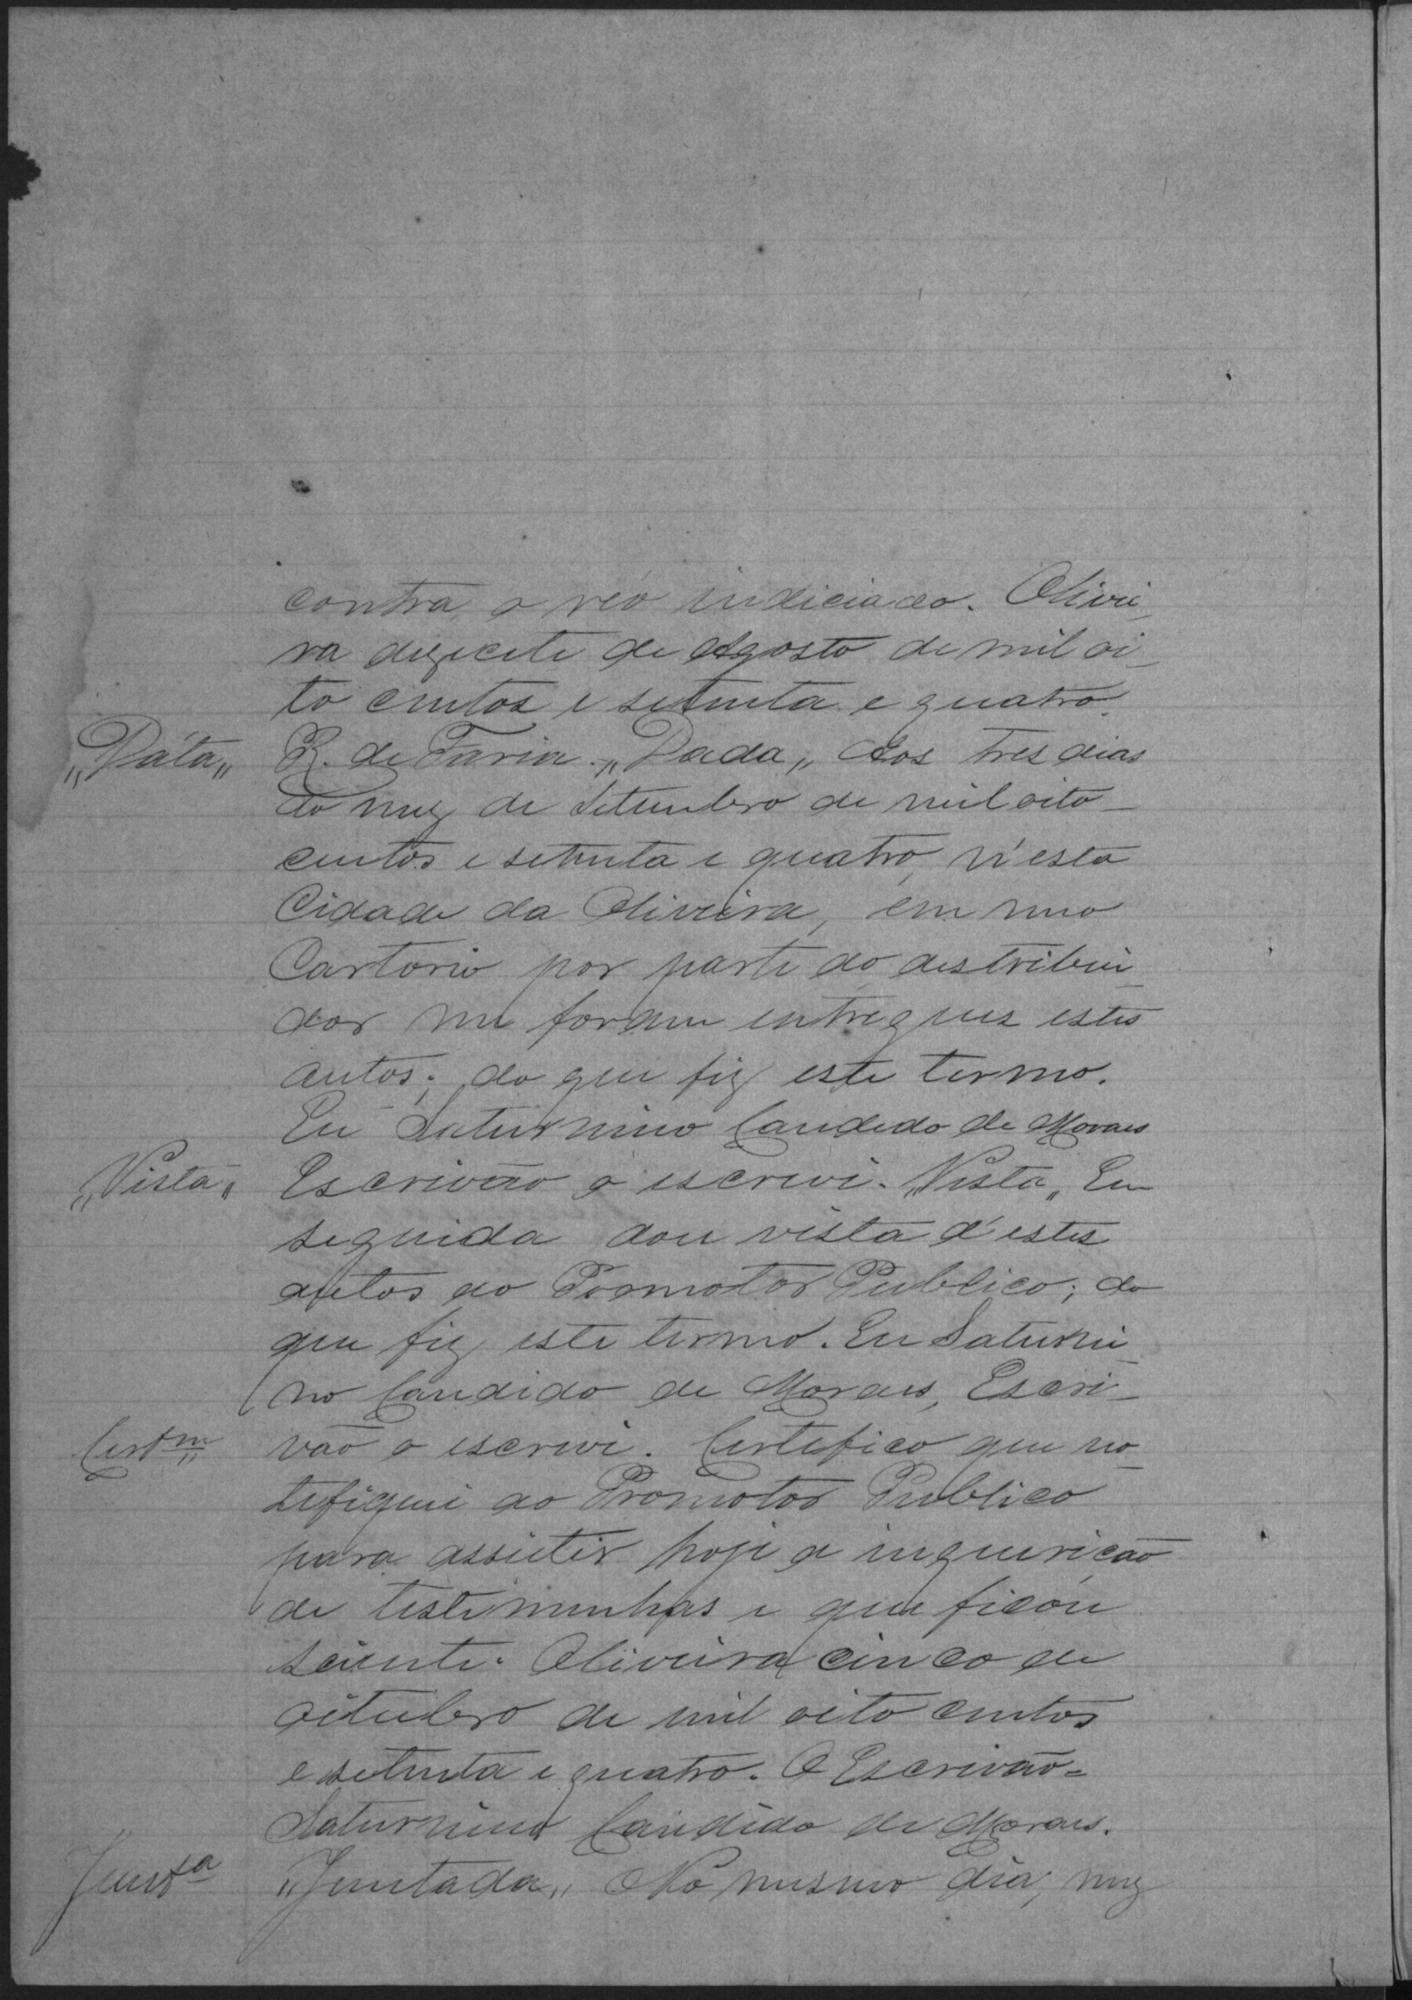 contra o réo indiciado. Olivei_
ra dezecete de Agosto de mil oi_
to centos e setenta e quatro.
„Dáta„ R. de Faria. „Dada„ Aos tres dias
do mez de Setembro de mil oito_
centos e setenta e quatro, n'esta
Cidade da Oliveira, em meo
Cartorio por parte do destribui_
dor me foram entregues estes
autos; do que fiz este termo.
Eu Saturnino Candido de Moraes
„Vista„ Escrivão o escrevi. „Vista„ Em
seguida dou vista d'estes
autos ao Promotor Publico; do
que fiz este termo. Eu Saturni_
no Candido de Moraes, Escri_
Certm vão o escrevi. Certefico que no_
tefiquei ao Promotor Publico
para assistir hoje a inquirição
de testimunhas e que ficou
sciente. Oliveira cinco de
oitubro de mil oito centos
e setenta e quatro. O Escrivão=
Saturnino Candido de Moraes.
Juntª „Juntada„ No mesmo dia, mez